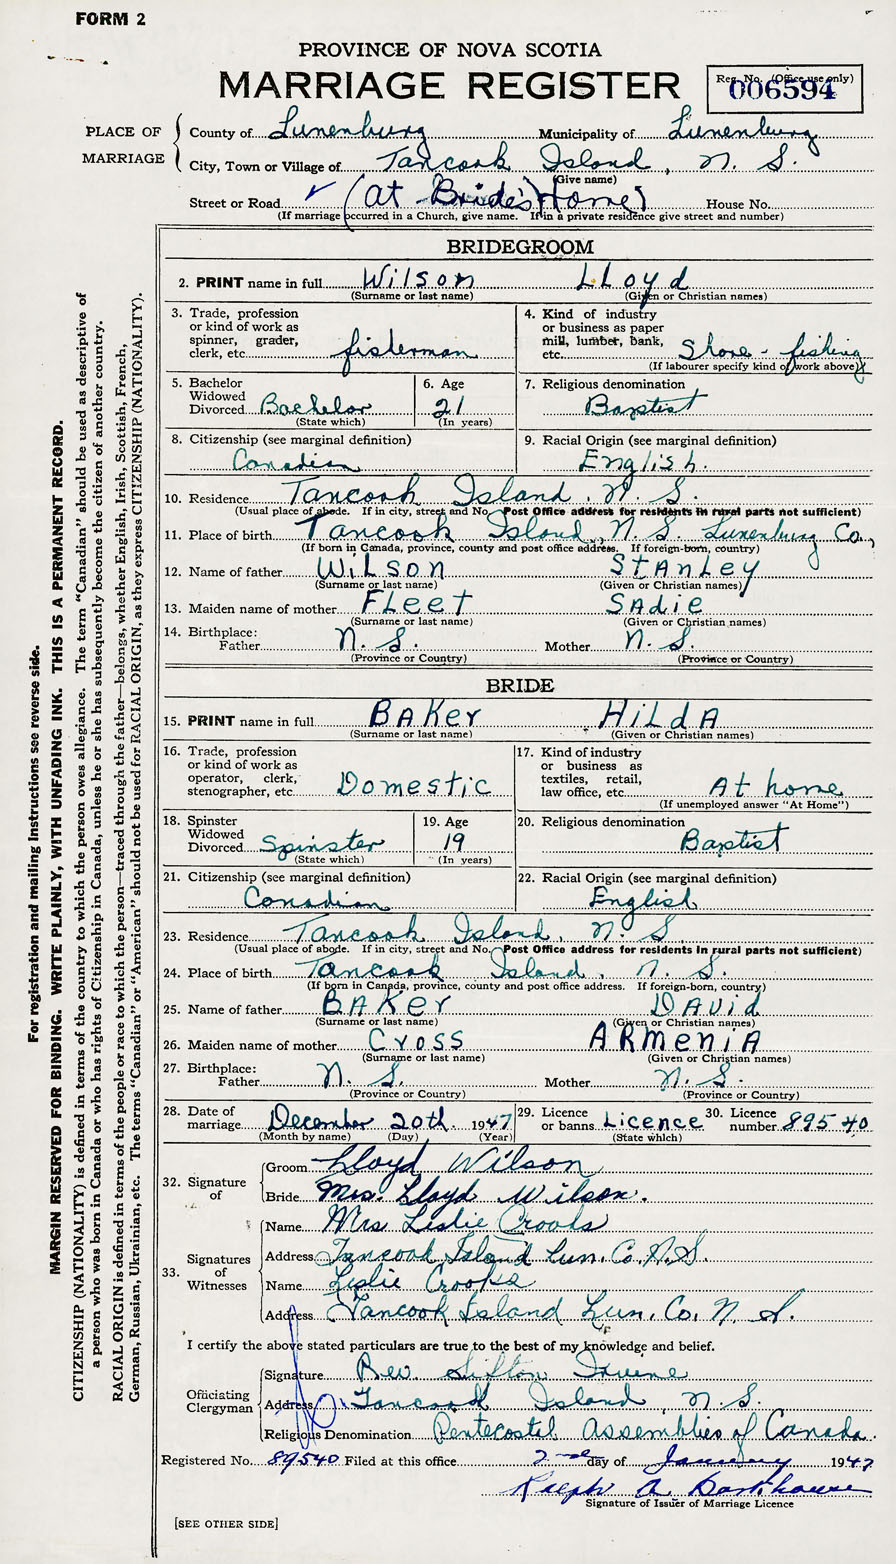 FORM 2
PROVINCE OF NOVA SCOTIA
MARRIAGE REGISTER
Reg. No. (Office use only)
006594
PLACE OF MARRIAGE
County of Lunenburg Municipality of Lunenburg
City, Town or Village of Tancook Island, N. S.
(Give name)
Street or Road ✓ (At Bride's Home) House No.
(If marriage occurred in a Church, give name. If in a private residence give street and number)
BRIDEGROOM
2. PRINT name in full Wilson Lloyd
(Surname or last name) (Given or Christian names)
3. Trade, profession or kind of work as spinner, grader, clerk, etc. fisherman
4. Kind of industry or business as paper mill, lumber, bank, etc. Shore-fishing
(If labourer specify kind of work above)
5. Bachelor Widowed Divorced Bachelor
(State which)
6. Age 21
(In years)
7. Religious denomination
Baptist
8. Citizenship (see marginal definition)
Canadian
9. Racial Origin (see marginal definition)
English.
10. Residence Tancook Island, N. S.
(Usual place of abode. If in city, street and No. Post Office address for residents in rural parts not sufficient)
11. Place of birth Tancook Island, N. S. Lunenburg Co.,
(If born in Canada, province, county and post office address. If foreign-born, country)
12. Name of father Wilson Stanley
(Surname or last name) (Given or Christian names)
13. Maiden name of mother Fleet Sadie
(Surname or last name) (Given or Christian names)
14. Birthplace:
Father N. S. Mother N. S.
(Province or Country) (Province or Country)
BRIDE
15. PRINT name in full Baker Hilda
(Surname or last name) (Given or Christian names)
16. Trade, profession or kind of work as operator, clerk, stenographer, etc. Domestic
17. Kind of industry or business as textiles, retail, law office, etc. At home
(If unemployed answer "At Home")
18. Spinster Widowed Divorced Spinster
(State which)
19. Age 19
(In years)
20. Religious denomination
Baptist
21. Citizenship (see marginal definition)
Canadian
22. Racial Origin (see marginal definition)
English
23. Residence Tancook Island, N. S.
(Usual place of abode. If in city, street and No. Post Office address for residents in rural parts not sufficient)
24. Place of birth Tancook Island, N. S.
(If born in Canada, province, county and post office address. If foreign-born, country)
25. Name of father Baker David
(Surname or last name) (Given or Christian names)
26. Maiden name of mother Cross Armenia
(Surname or last name) (Given or Christian names)
27. Birthplace:
Father N. S. Mother N. S.
(Province or Country) (Province or Country)
28. Date of marriage December 20th. 1947
(Month by name) (Day) (Year)
29. Licence or banns Licence
(State which)
30. Licence number 89540
32. Signature of
Groom Lloyd Wilson
Bride Mrs. Lloyd Wilson.
33. Signatures of Witnesses
Name Mrs Leslie Crooks
Address Tancook Island Lun. Co. N.S.
Name Leslie Crooks
Address Tancook Island Lun. Co, N. S.
I certify the above stated particulars are true to the best of my knowledge and belief.
Officiating Clergyman
Signature Rev. Sifton Irvine
Address Tancook Island, N. S.
Religious Denomination Pentecostal Assemblies of Canada.
Registered No. 89540 Filed at this office 2nd day of January 1947
Ralph A
Signature of Issuer of Marriage Licence
[SEE OTHER SIDE]
For registration and mailing instructions see reverse side.
MARGIN RESERVED FOR BINDING. WRITE PLAINLY, WITH UNFADING INK. THIS IS A PERMANENT RECORD.
CITIZENSHIP (NATIONALITY) is defined in terms of the country to which the person owes allegiance. The term "Canadian" should be used as descriptive of
a person who was born in Canada or who has rights of Citizenship in Canada, unless he or she has subsequently become the citizen of another country.
RACIAL ORIGIN is defined in terms of the people or race to which the person—traced through the father—belongs, whether English, Irish, Scottish, French,
German, Russian, Ukrainian, etc. The terms "Canadian" or "American" should not be used for RACIAL ORIGIN, as they express CITIZENSHIP (NATIONALITY).